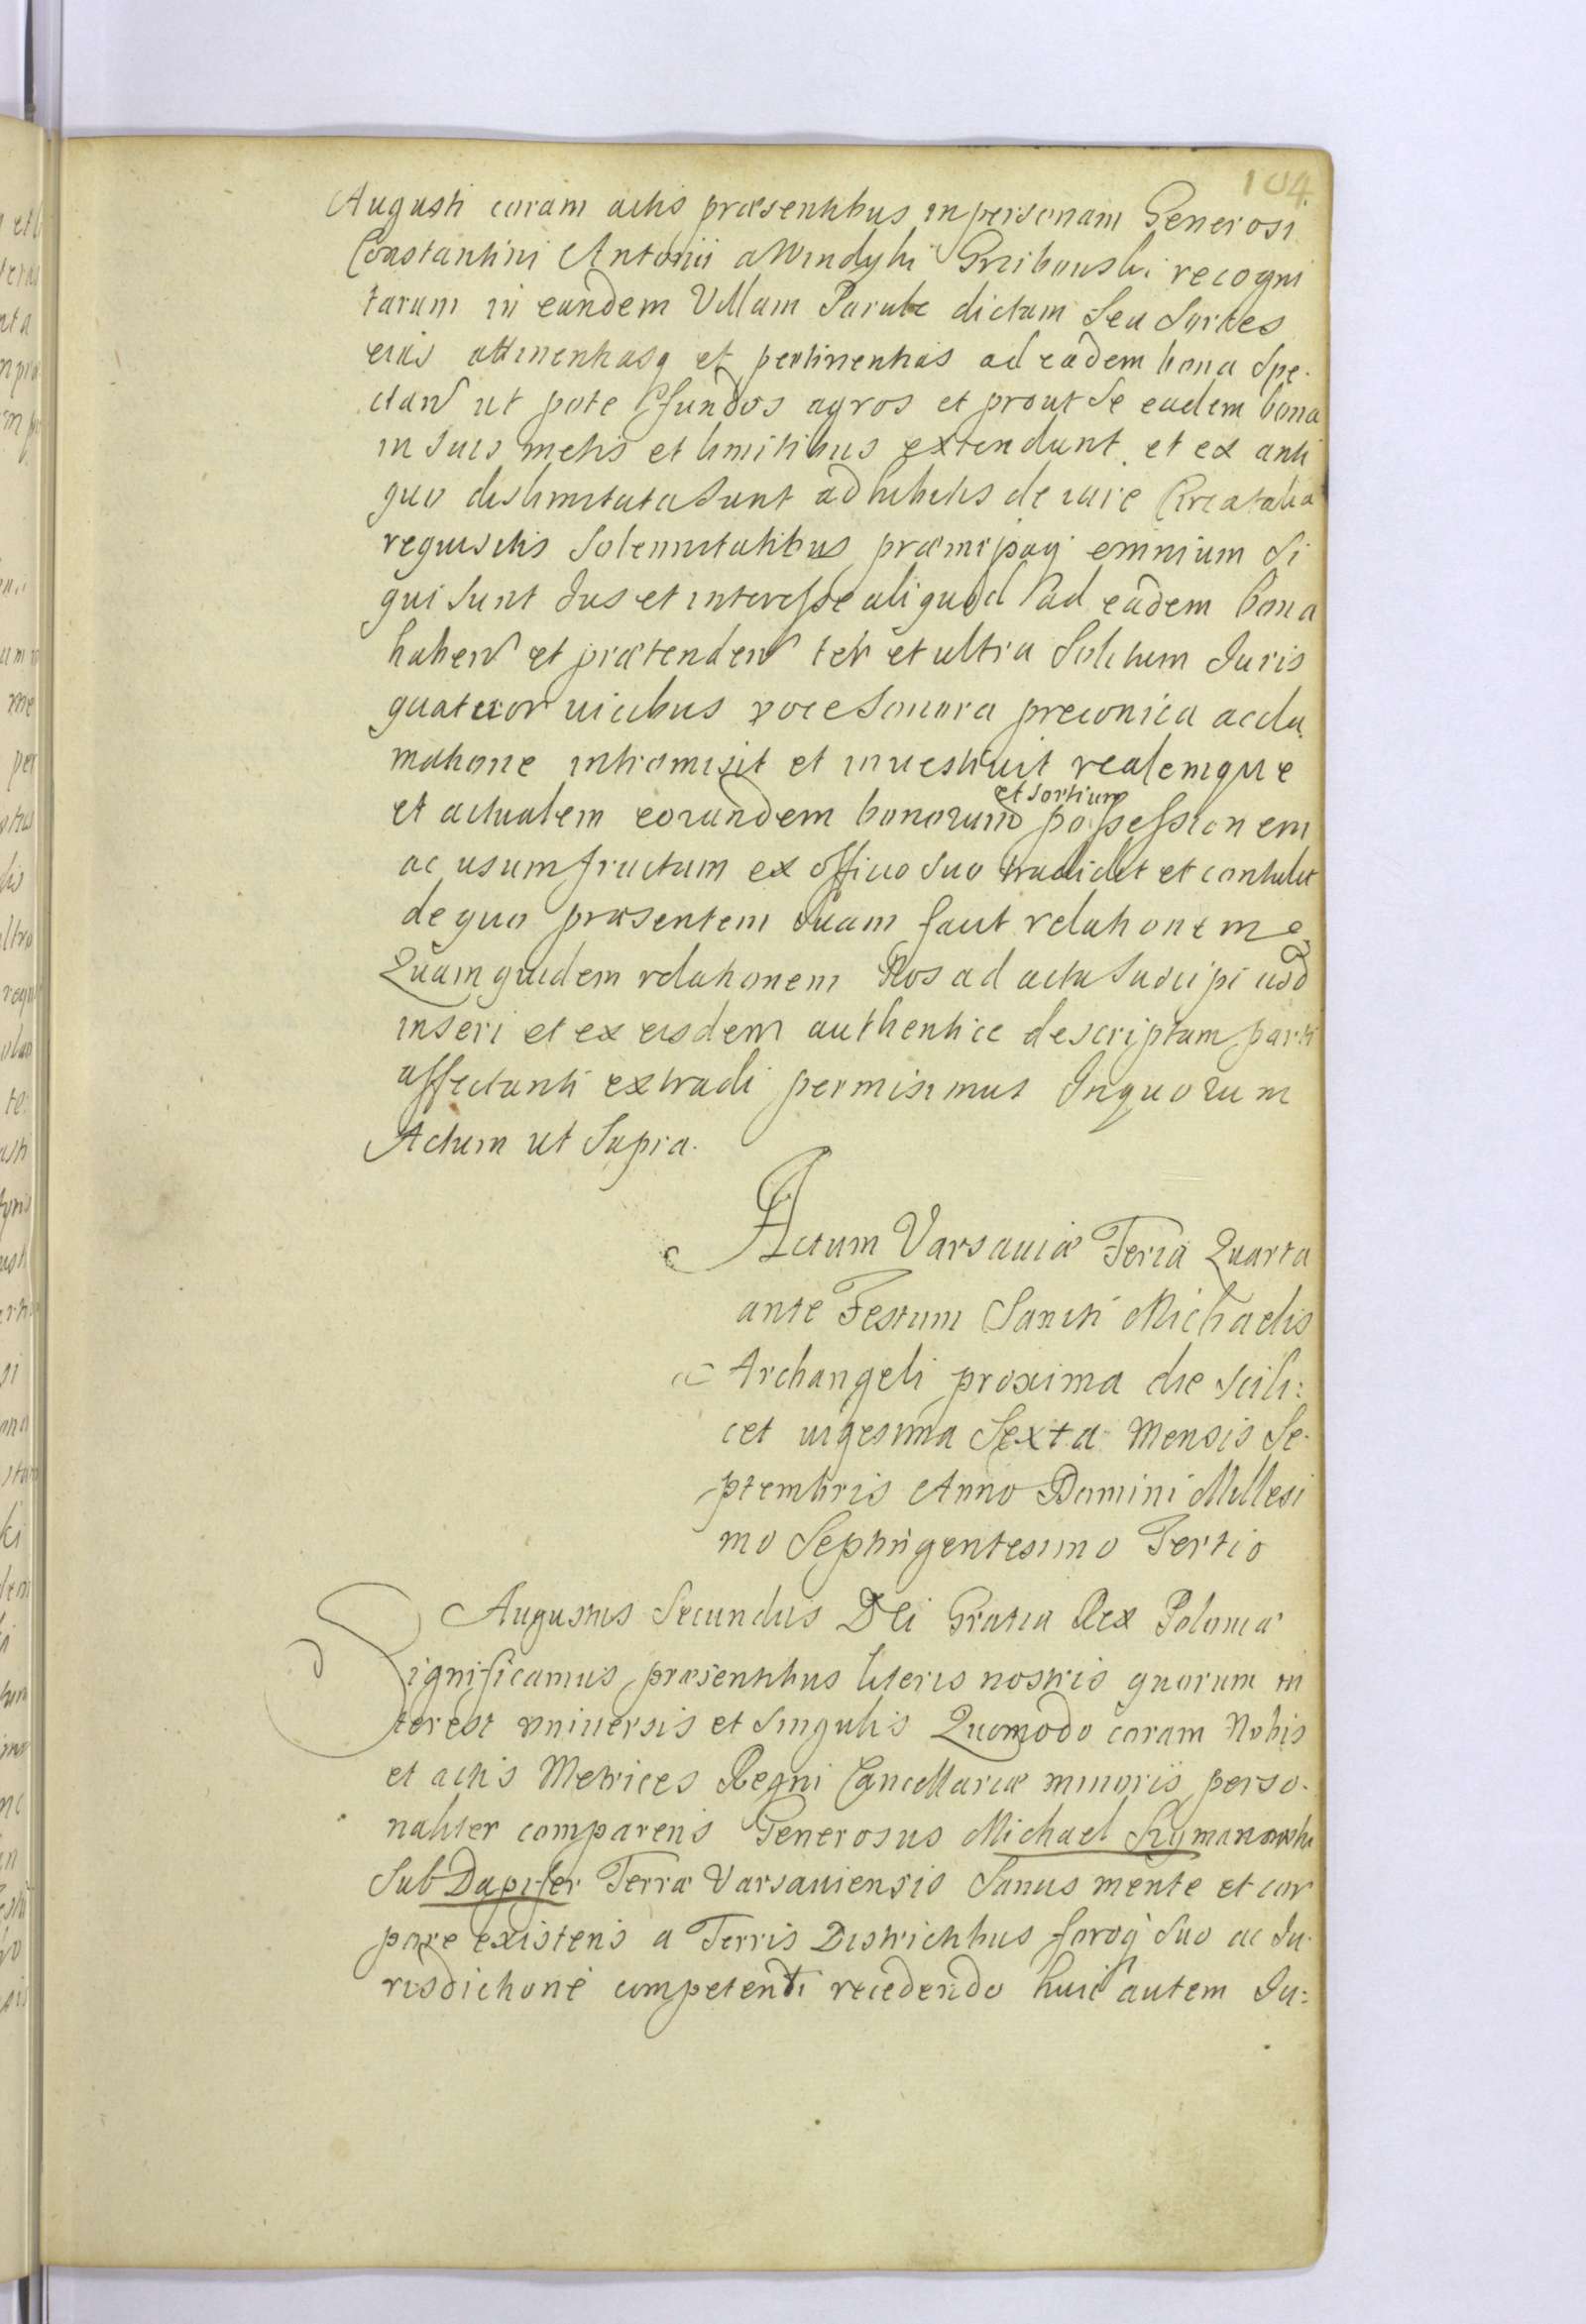 104
Augusti coram actis præsentibus in personam Generosi
Constantini Antonii a Windyki Grzibouski recogni
tarum in eandem Villam Parule dictam seu sortes
eius attinentiasq et pertinentias ad eadem bona spe-
ctan ut pote fundos agros et prout se eadem bona
in suis metis et limitibus extendunt et ex anti
quo dislimitata sunt adhibitis de iure circa talia
requisitis solemnitatibus præmissaq omnium si
qui sunt Jus et interesse aliquod ad eadem bona
haben et prætenden ter et ultra solitum Juris
quatuor vicibus voce sonora preconica accla
matione intromisit et inuestiuit realemque
et sortium
et actualem eorundem bonorum possessionem
ac usumfructum ex officio suo tradidit et contulit
de quo præsentem suam facit relationem
Quam quidem relationem Nos ad acta suscipi iisd
inseri et ex eisdem authentice descriptam parti
affectanti extradi permisimus Inquorum
Actum ut Supra.
Actum Varsauiæ Feria Quarta
ante Festum Sancti Michaelis
Archangeli proxima die scili:
cet uigesima Sexta Mensis Se-
ptembris Anno Domini Millesi
mo Septingentesimo Tertio
Augustus Secundus Dei Gratia Rex Poloniæ
Significamus præsentibus literis nostris quorum in
terest vniuersis et singulis Quomodo coram Nobis
et actis Metrices Regni Cancellariæ minoris perso-
naliter comparens Generosus Michael Szymanowski
SubDapifer Terræ Varsauiensis Sanus mente et cor
pore existens a Terris Districtibus foroq suo ac Ju
risdictione competenti recedendo huic autem Ju: